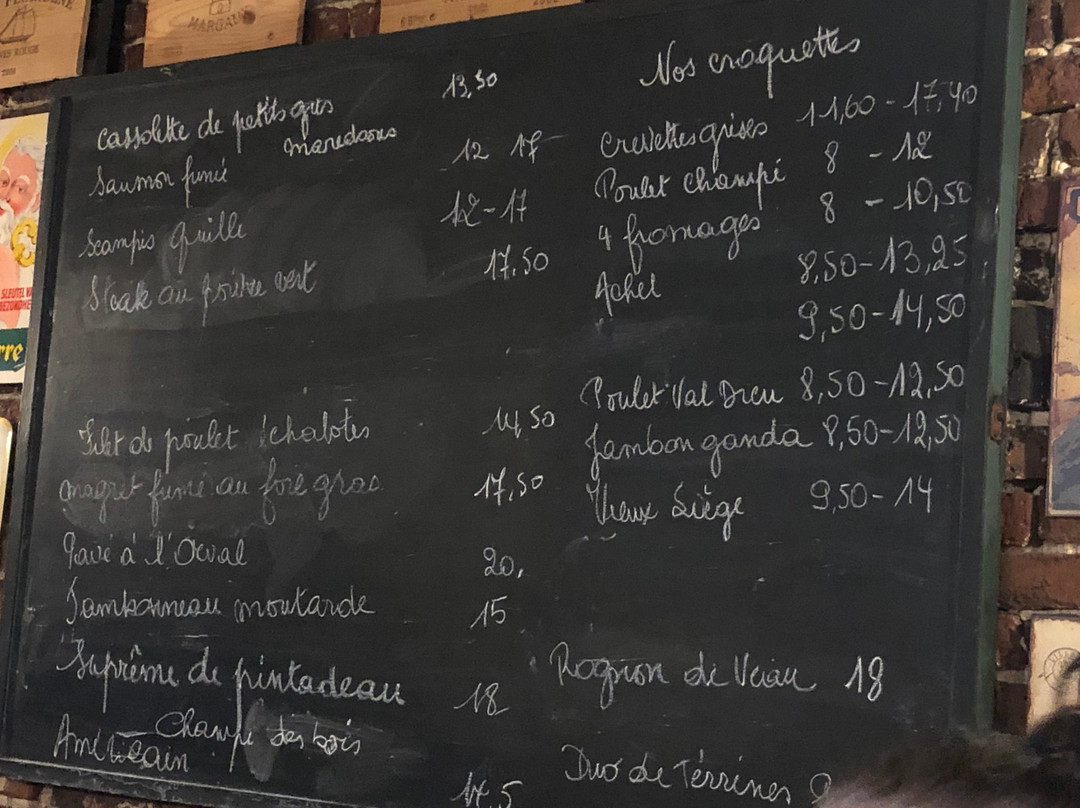 MARGAUX
13,50
cassolette de petits gris
maredsous
Saumon fumé 12 17
Scampis quille 12-17
Steak au poivre vert 17,50
Filet de poulet échalotes 14,50
magret fumé au foie gras 17,50
Pavé à l'Orval 20,
Jambonneau moutarde 15
Suprême de pintadeau 18
Champi des bois
Américain
17,5
Nos croquettes
Crevettes grises 11,60-17,40
Poulet champi 8 - 12
4 fromages 8 - 10,50
Achel 8,50-13,25
9,50-14,50
Poulet Val Dieu 8,50-12,50
Jambon ganda 8,50-12,50
Vieux Liège 9,50-14
Rognon de Veau 18
Duo de Térrines
SLEUTEL